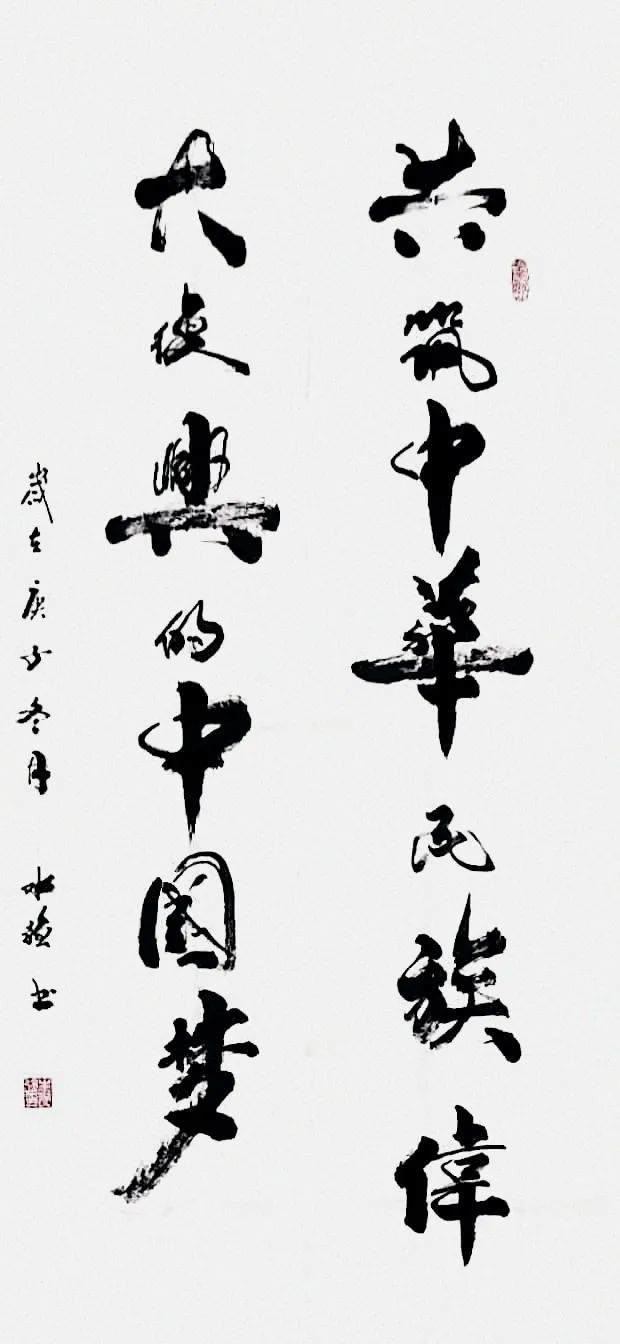 共筑中華民族偉
大復興的中国梦
歲在庚子冬月 水 书